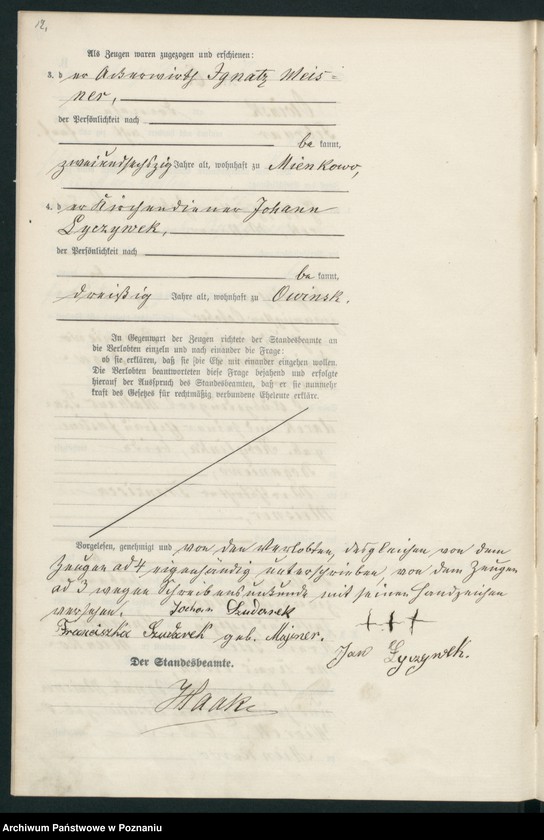 12.
Als Zeugen waren zugezogen und erschienen:
3. der Ackerwirth Ignatz Meis=
ner,
der Persönlichkeit nach
be kannt,
zweiundsechszig Jahre alt, wohnhaft zu Mienkowo,
4. der Kirchendiener Johann
Lyczywek,
der Persönlichkeit nach
be kannt,
dreißig Jahre alt, wohnhaft zu Owinsk.
In Gegenwart der Zeugen richtete der Standesbeamte an
die Verlobten einzeln und nach einander die Frage:
ob sie erklären, daß sie die Ehe mit einander eingehen wollen.
Die Verlobten beantworteten diese Frage bejahend und erfolgte
hierauf der Ausspruch des Standesbeamten, daß er sie nunmehr
kraft des Gesetzes für rechtmäßig verbundene Eheleute erkläre.
Vorgelesen, genehmigt und von den Verlobten, desgleichen von dem
Zeugen ad 4 eigenhändig unterschrieben von dem Zeugen
ad 3 wegen Schreibensunkunde mit seinem Handzeichen
versehen.
Szudarek
+++
Franciszka Szudarek geb. Majsner.
Jan Łyczywek.
Der Standesbeamte.
Haake
Archiwum Państwowe w Poznaniu